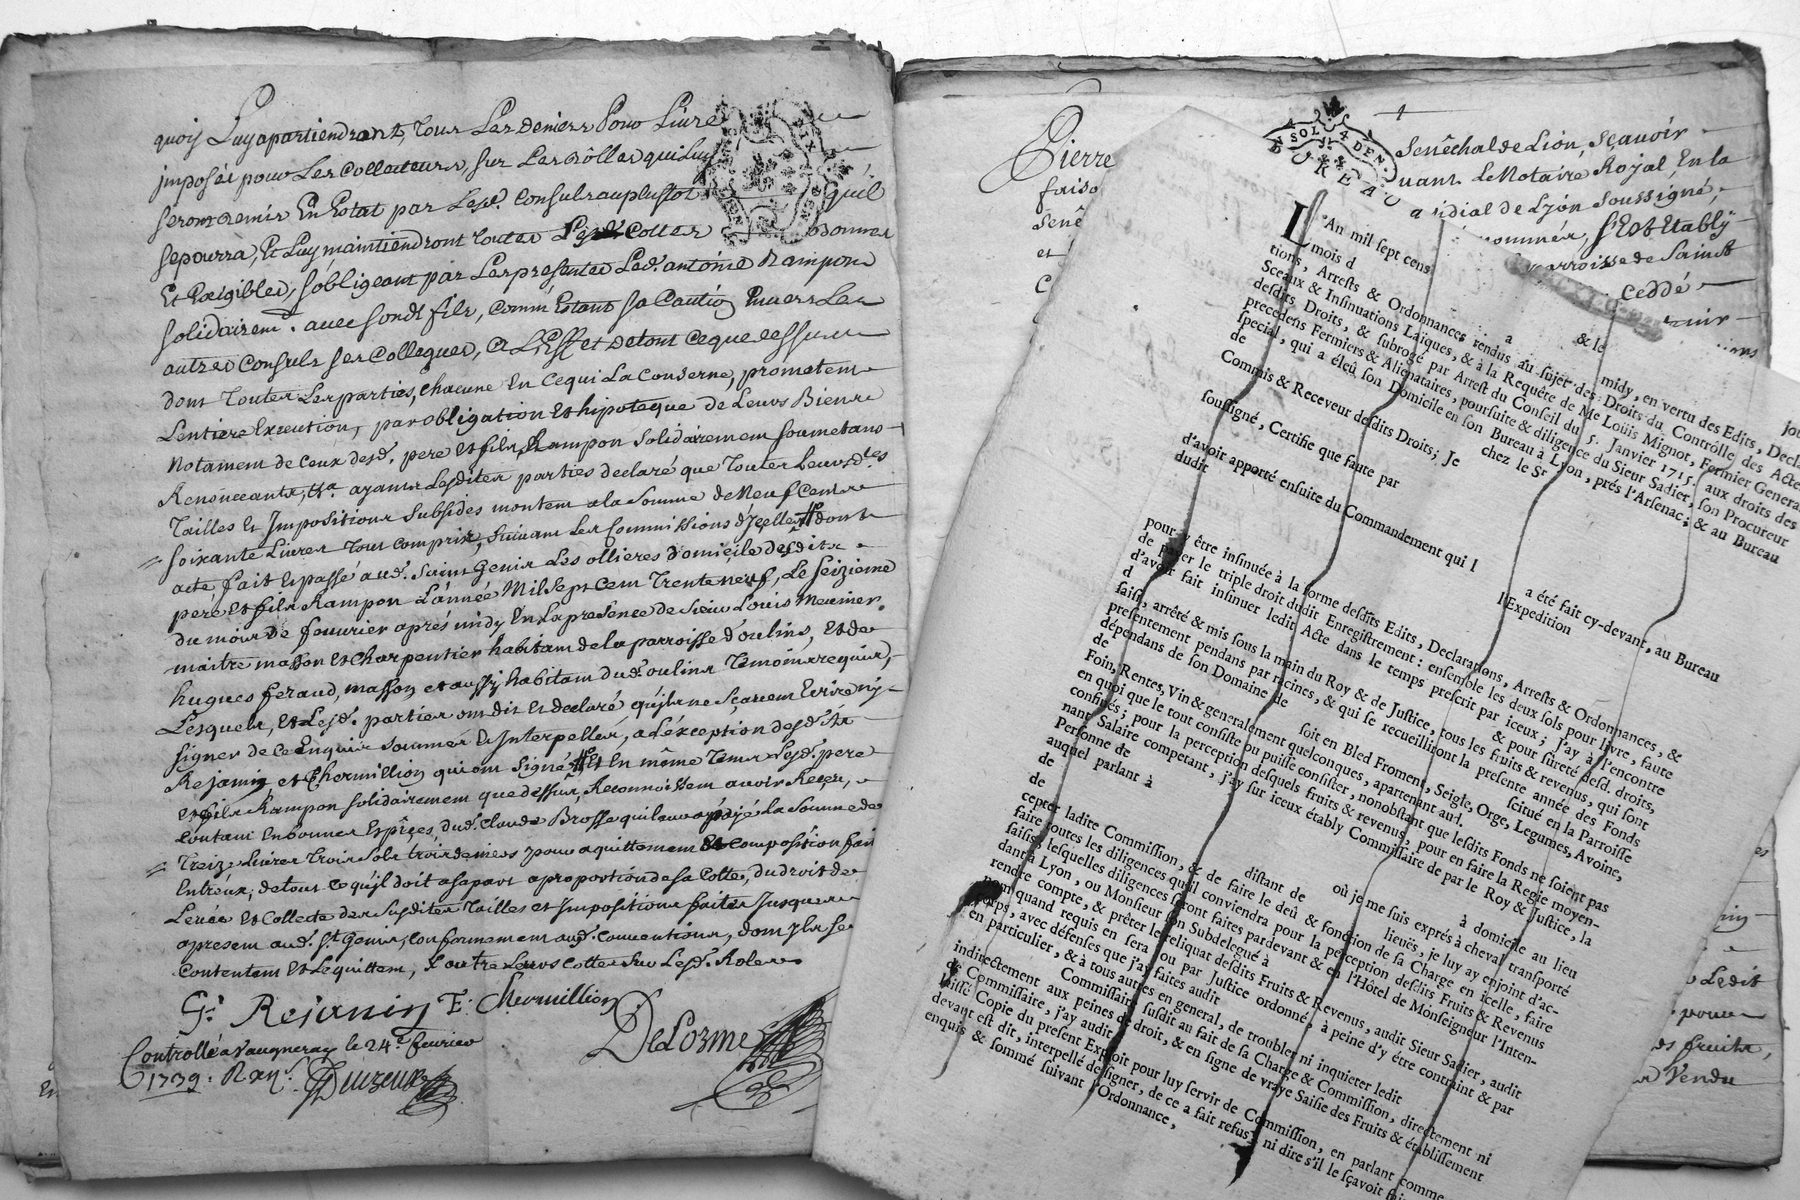 quoy Luy apartiendront, Tous Les deniers Pour Livre
imposés pour Les Collecteurs, sur Les Rôlles qui Luy
seront remis En Estat par Lesd. Consuls au plustot quil
sepourra, Et Luy maintiendront toutes Cottes bonnes
Et Exigibles, sobligeant par Les presentes Led. antoine Rampon
solidairemt. avec sondt fils, comme Estant sa Caution Envers Les
autres Consuls ses Collegues, a L'Eff et detout ceque dessus
dont Toutes Les parties, chacune En cequi La conserne, promettent
Lentiere Execution, par obligation Et hipoteque de Leurs Biens
Notament de Ceux desd. pere Et fils Rampon solidairement soumetans
Renonceants, &a. ayants Lesdites parties declaré que Toutes Leursdtes
Tailles Et Impositions subsides montent a la somme de Neuf Cents
soixante Livres tout compris, suivant Les Commissions d'Jcelles # dont
acte, fait Et passé aud. Saint Genis Les ollieres domicile desdits
pere Et fils Rampon L'année Mil sept Cent Trente neuf, Le seizieme
du mois de fevurier aprés midy En La presence de sieur Louis Meunier
maitre masson Et Charpentier habitant de la parroisse d'oulins, Et de
hugues feraud, masson et aussy habitant dud. oulins Temoins requis,
Lesquels, Et Lesd. parties ont dit Et declaré qu'ils ne sçavent Ecrire ny
signer de ce Enquis sommés Et Interpellés, a L'éxception desdits
Rejanin, et Chermillion qui ont signé # Et En même Tems Lesd. pere
et fils Rampon solidairement que dessus, Reconnoissent avoir Receu,
Contant En bonnes Espéces, dud. Claude Brosse qui leur a payé La somme de
Treize Livres Trois sols trois deniers pour aquittement Et composition fait
Entr'eux, de tout ce qu'jl doit a sa part a proportion de sa Cotte, du droit de
Levée Et Collecte des Susdites Tailles et Jmpositions faites Jusques
apresent aud. St Genis, conformement aud. conventions, dont jls se
Contentent Et Lequittent, & outre Leurs cottes sur Lesd. Roles
Gs Rejanin F. Chermillion
DeLorme
Controllé a Vaugneray le 24e fevrier
1739. R
Pierre
faiso
senê
et
SOL 4 DEN.
BUREA
Senêchal de Lion, sçavoir
vant Le Notaire Royal, En la
idial de Lyon soussigné,
nommés, s'Est Etably
arroisse de Saint
ceddé
L'An mil sept cens & le jou
mois d a midy, en vertu des Edits, Decla
tions, Arrests & Ordonnances rendus au sujet des Droits du Contrôlle des Acte
Sceaux & Insinuations Laïques, & à la Requête de Me Loüis Mignot, Fermier Genera
desdits Droits, & subrogé par Arrest du Conseil du 5. Janvier 1715. aux droits des
precedens Fermiers & Alienataires, poursuite & diligence du Sieur Sadier, son Procureur
special, qui a élçû son Domicile en son Bureau à Lyon, prés l'Arsenac; & au Bureau
de chez le Sr
Commis & Receveur desdits Droits; Je
soussigné, Certifie que faute par
d'avoir apporté ensuite du Commandement qui l a été fait cy-devant, au Bureau
dudit l'Expedition
pour y être insinuée à la forme desdits Edits, Declarations, Arrests & Ordonnances, &
de payer le triple droit dudit Enregistrement: ensemble les deux sols pour livre, faute
d'avoir fait insinuer ledit Acte dans le temps prescrit par iceux; j'ay à l'encontre
d & pour sûreté desd. droits,
saisi, arrêté & mis sous la main du Roy & de Justice, tous les fruits & revenus, qui sont
presentement pendans par racines, & qui se recueilliront la presente année des Fonds
dépendans de son Domaine de scitué en la Parroisse
de soit en Bled Froment, Seigle, Orge, Legumes, Avoine,
Foin, Rentes, Vin & generalement quelconques, apartenant aud.
en quoi que le tout consiste ou puisse consister, nonobstant que lesdits Fonds ne soient pas
confinés; pour la perception desquels fruits & revenus, pour en faire la Regie moyen-
nant Salaire competant, j'ay sur iceux étably Commissaire de par le Roy & Justice, la
Personne de
de où je me suis exprés à cheval transporté
auquel parlant à à domicile au lieu
de distant de lieuës, je luy ay enjoint d'ac-
cepter ladite Commission, & de faire le deû & fonction de sa Charge en icelle, faire
faire toutes les diligences qu'il conviendra pour la perception desdits Fruits & Revenus
saisis, lesquelles diligences seront faites pardevant & en l'Hôtel de Monseigneur l'Inten-
dant à Lyon, ou Monsieur son Subdelegué à
rendre compte, & prêter le reliquat desdits Fruits & Revenus, audit Sieur Sadier, audit
nom quand requis en sera ou par Justice ordonné, à peine d'y être contraint & par
corps, avec défenses que j'ay faites audit
en particulier, & à tous autres en general, de troubler ni inquieter ledit
Commissaire susdit au fait de sa Charge & Commission, directement ni
indirectement aux peines de droit, & en signe de vraye Saisie des Fruits & établissement
de Commissaire, j'ay audit
laissé Copie du present Exploit pour luy servir de Commission, en parlant comme
devant est dit, interpellé de signer, de ce a fait refus, ni dire s'il le sçavoit fai
enquis & sommé suivant l'Ordonnance,
Ledit
pour
es fruits,
Vendu